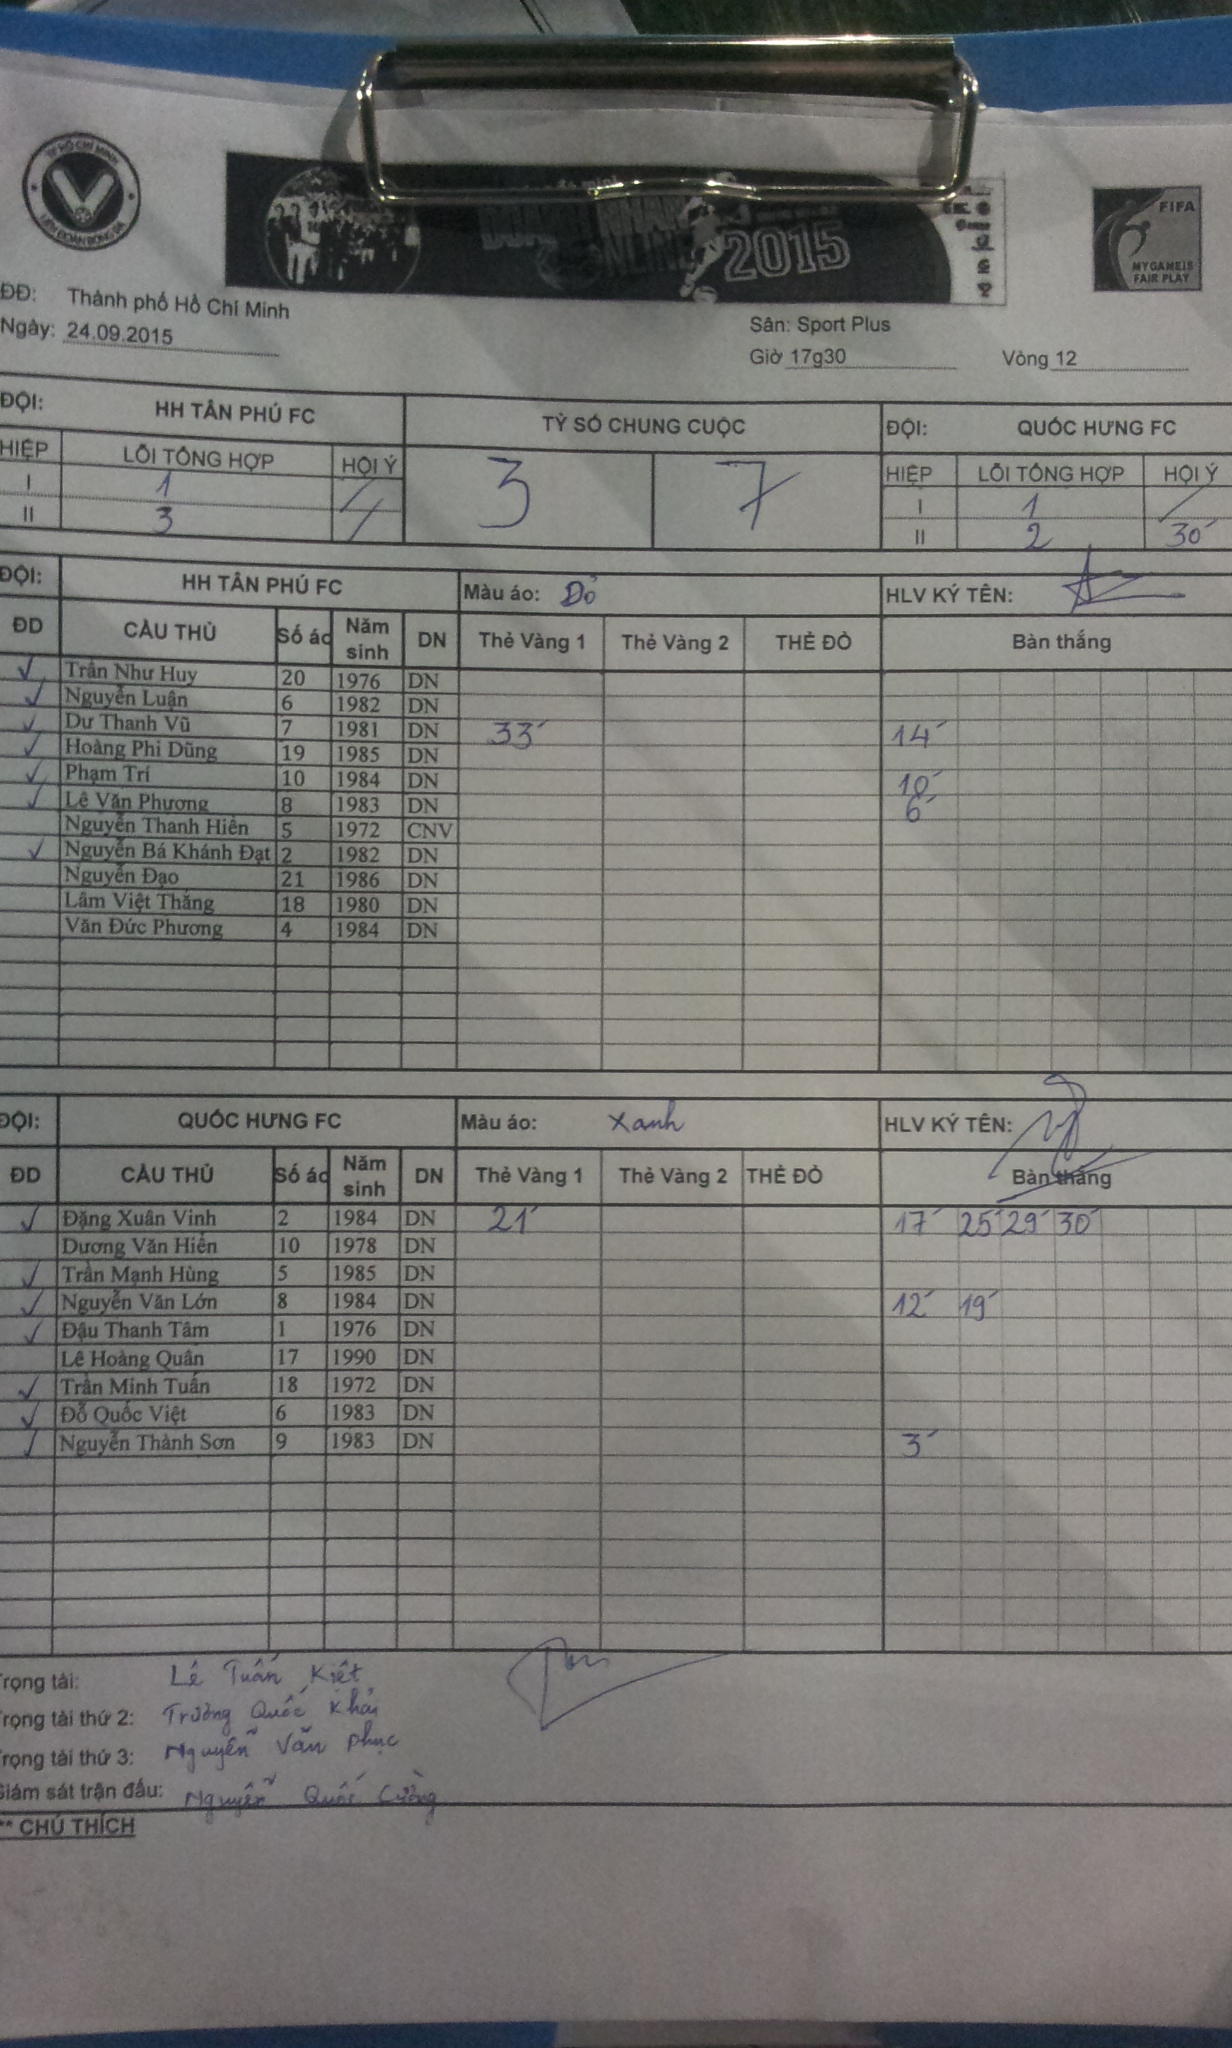 TP HỒ CHÍ MINH
LIÊN ĐOÀN BÓNG ĐÁ
DOANH NHÂN
ONLINE
2015
FIFA
MY GAME IS
FAIR PLAY
ĐĐ: Thành phố Hồ Chí Minh
Ngày: 24.09.2015
Sân: Sport Plus
Giờ 17g30 Vòng 12
ĐỘI: HH TÂN PHÚ FC TỶ SỐ CHUNG CUỘC ĐỘI: QUỐC HƯNG FC
HIỆP LỖI TỔNG HỢP HỘI Ý 3 7 HIỆP LỖI TỔNG HỢP HỘI Ý
I 1 / I 1 /
II 3 / II 2 30'
ĐỘI: HH TÂN PHÚ FC Màu áo: Đỏ HLV KÝ TÊN:
ĐD CẦU THỦ Số áo Năm sinh DN Thẻ Vàng 1 Thẻ Vàng 2 THẺ ĐỎ Bàn thắng
✓ Trần Như Huy 20 1976 DN
✓ Nguyễn Luận 6 1982 DN
✓ Dư Thanh Vũ 7 1981 DN 33' 14'
✓ Hoàng Phi Dũng 19 1985 DN
✓ Phạm Trí 10 1984 DN 10'
✓ Lê Văn Phượng 8 1983 DN 6'
Nguyễn Thanh Hiền 5 1972 CNV
✓ Nguyễn Bá Khánh Đạt 2 1982 DN
Nguyễn Đạo 21 1986 DN
Lâm Việt Thắng 18 1980 DN
Văn Đức Phương 4 1984 DN
ĐỘI: QUỐC HƯNG FC Màu áo: Xanh HLV KÝ TÊN:
ĐD CẦU THỦ Số áo Năm sinh DN Thẻ Vàng 1 Thẻ Vàng 2 THẺ ĐỎ Bàn thắng
✓ Đặng Xuân Vinh 2 1984 DN 21' 17' 25' 29' 30'
Dương Văn Hiển 10 1978 DN
✓ Trần Mạnh Hùng 5 1985 DN
✓ Nguyễn Văn Lớn 8 1984 DN 12' 19'
✓ Đậu Thanh Tâm 1 1976 DN
Lê Hoàng Quân 17 1990 DN
✓ Trần Minh Tuấn 18 1972 DN
✓ Đỗ Quốc Việt 6 1983 DN
✓ Nguyễn Thành Sơn 9 1983 DN 3'
Trọng tài: Lê Tuấn Kiệt
Trọng tài thứ 2: Trương Quốc Khải
Trọng tài thứ 3: Nguyễn Văn Phục
Giám sát trận đấu: Nguyễn Quốc Cường
** CHÚ THÍCH